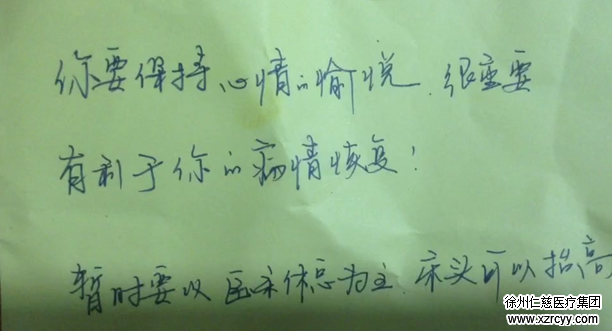 你要保持心情的愉悦.很重要
有利于你的病情恢复!
暂时要以卧床休息为主.床头可以抬高
徐州仁慈医疗集团
www.xzrcyy.com